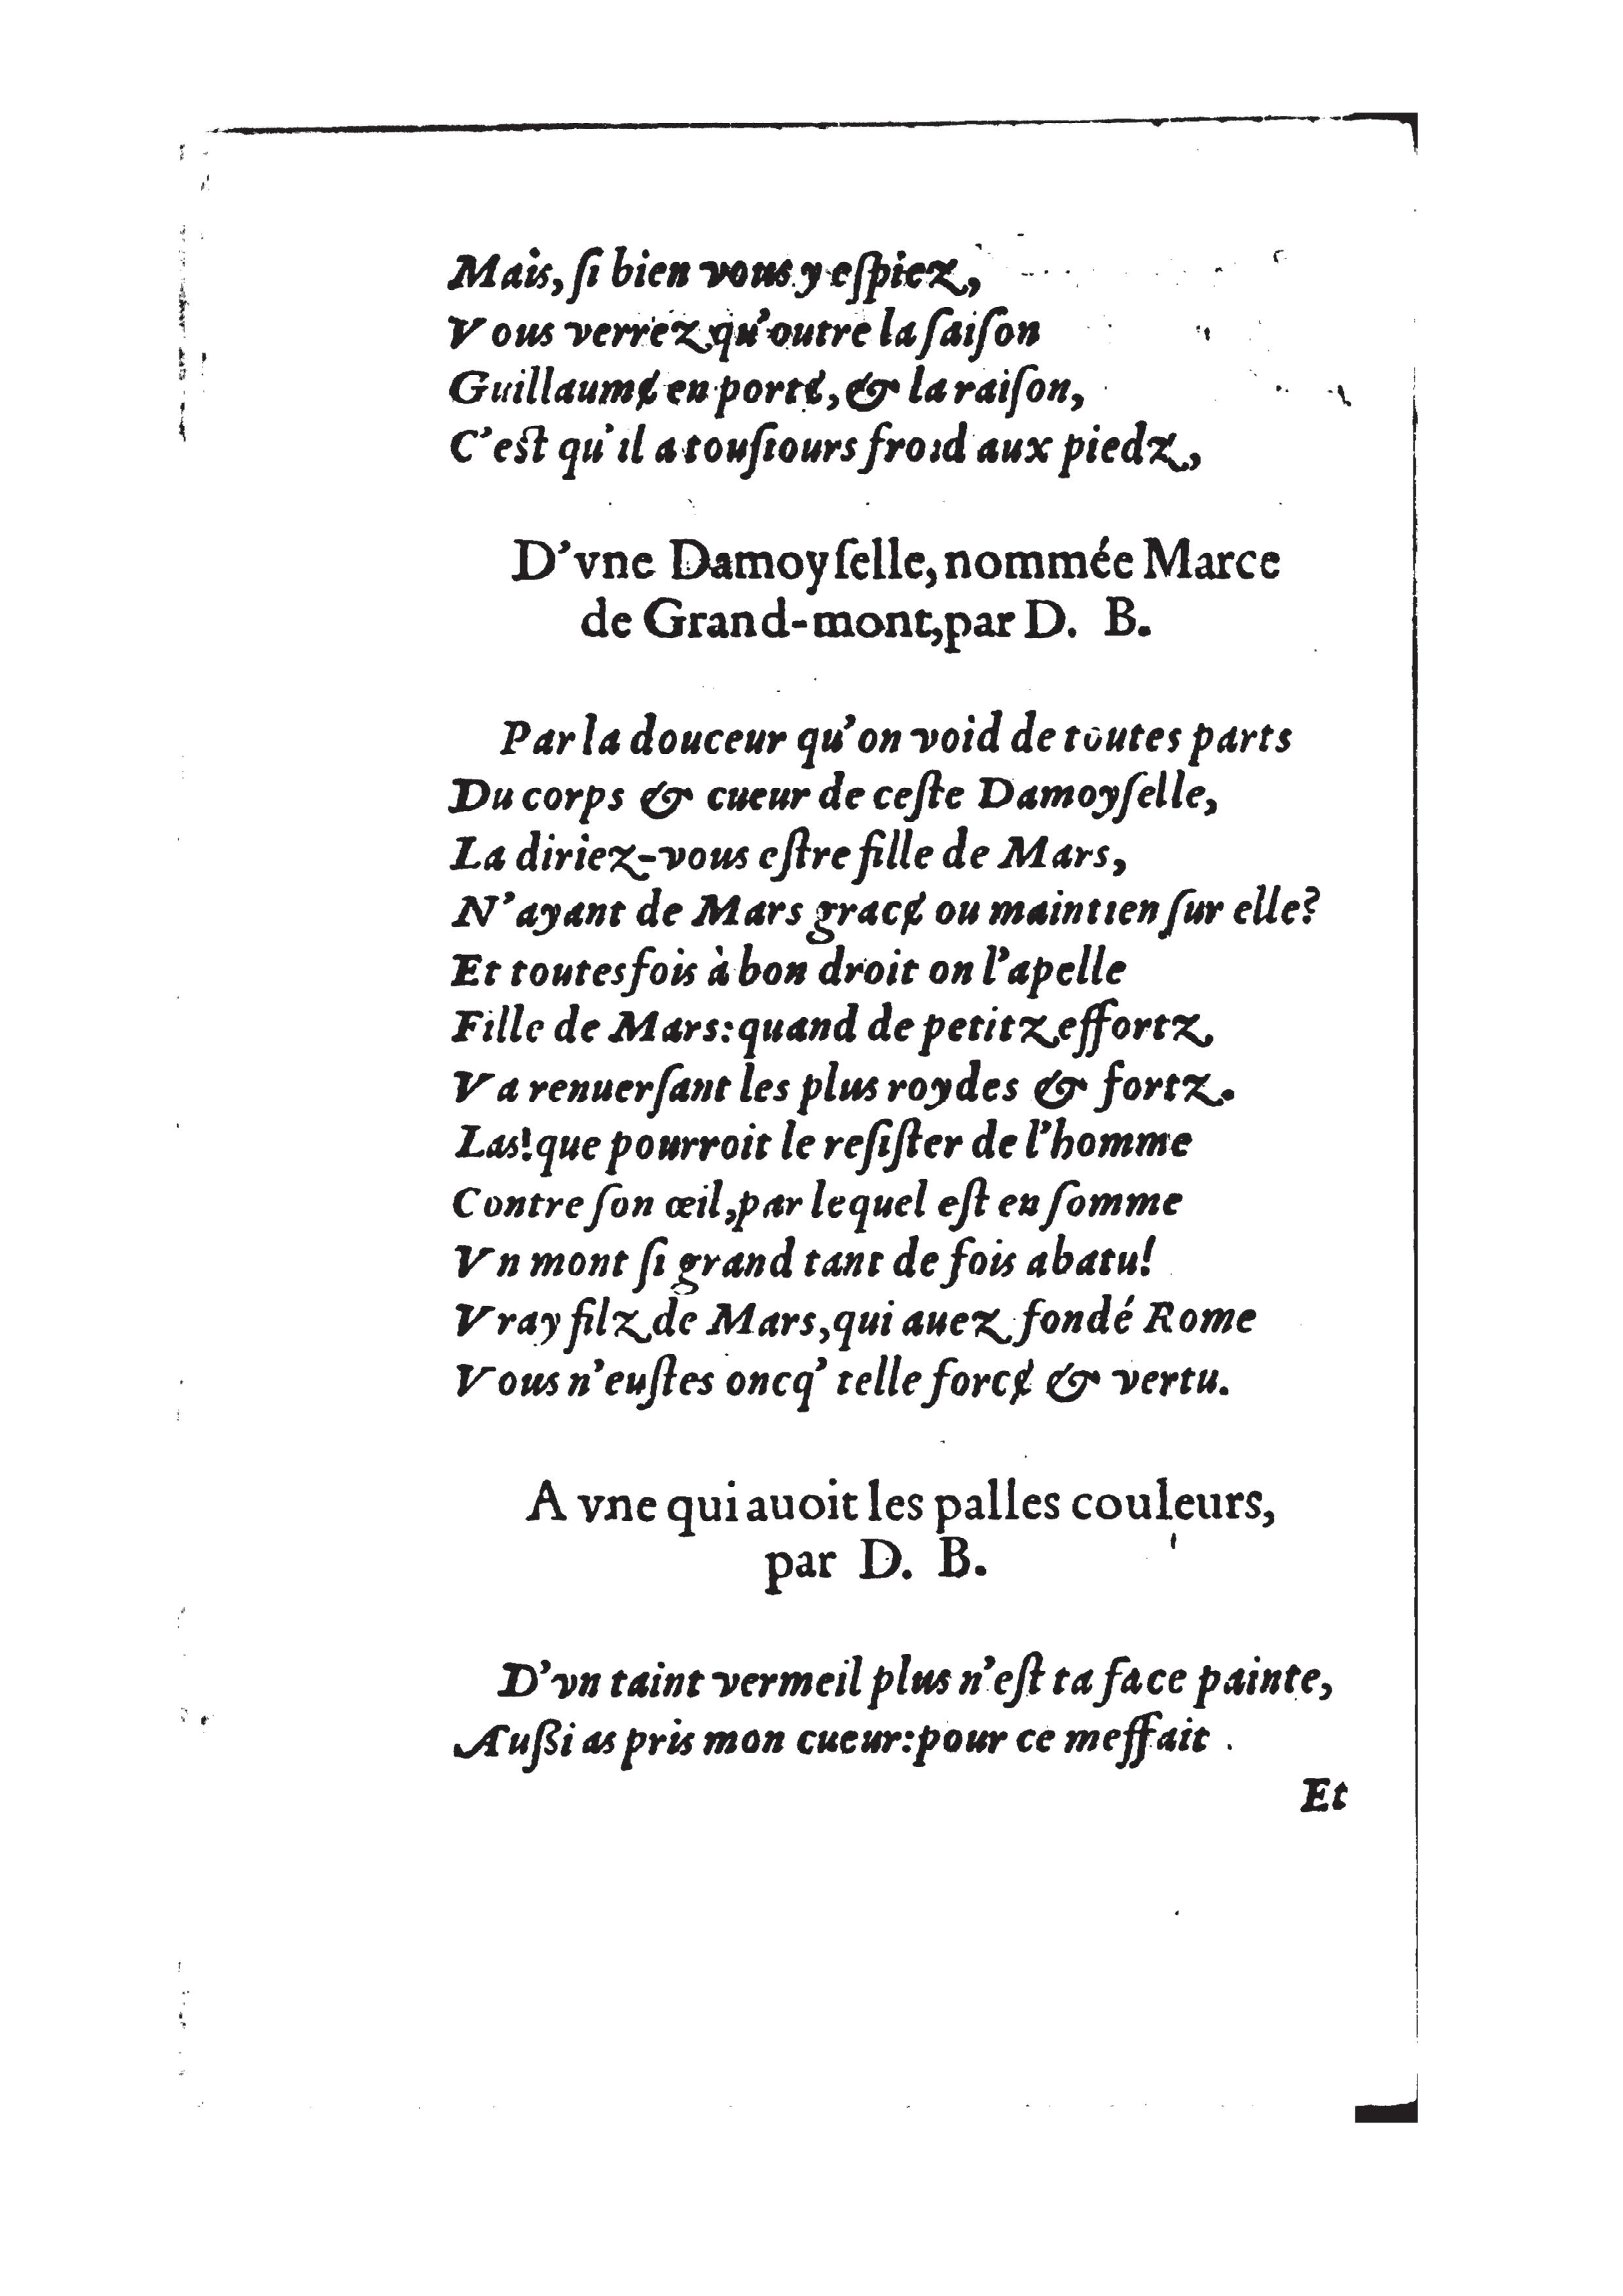 Mais, ſi bien vous y eſpiez,
Vous verrez qu'outre la ſaiſon
Guillaumɇ en portɇ, & la raiſon,
C'eſt qu'il a touſiours froid aux piedz,
D'vne Damoyſelle, nommée Marce
de Grand-mont, par D. B.
Par la douceur qu'on void de toutes parts
Du corps & cueur de ceſte Damoyſelle,
La diriez-vous eſtre fille de Mars,
N'ayant de Mars gracɇ ou maintien ſur elle?
Et toutesfois à bon droit on l'apelle
Fille de Mars: quand de petitz effortz
Va renuerſant les plus roydes & fortz.
Las! que pourroit le reſiſter de l'homme
Contre ſon œil, par lequel eſt en ſomme
Vn mont ſi grand tant de fois abatu!
Vray filz de Mars, qui auez fondé Rome
Vous n'euſtes oncq' telle forcɇ & vertu.
A vne qui auoit les palles couleurs,
par D. B.
D'vn taint vermeil plus n'eſt ta face painte,
Außi as pris mon cueur: pour ce meffait.
Et